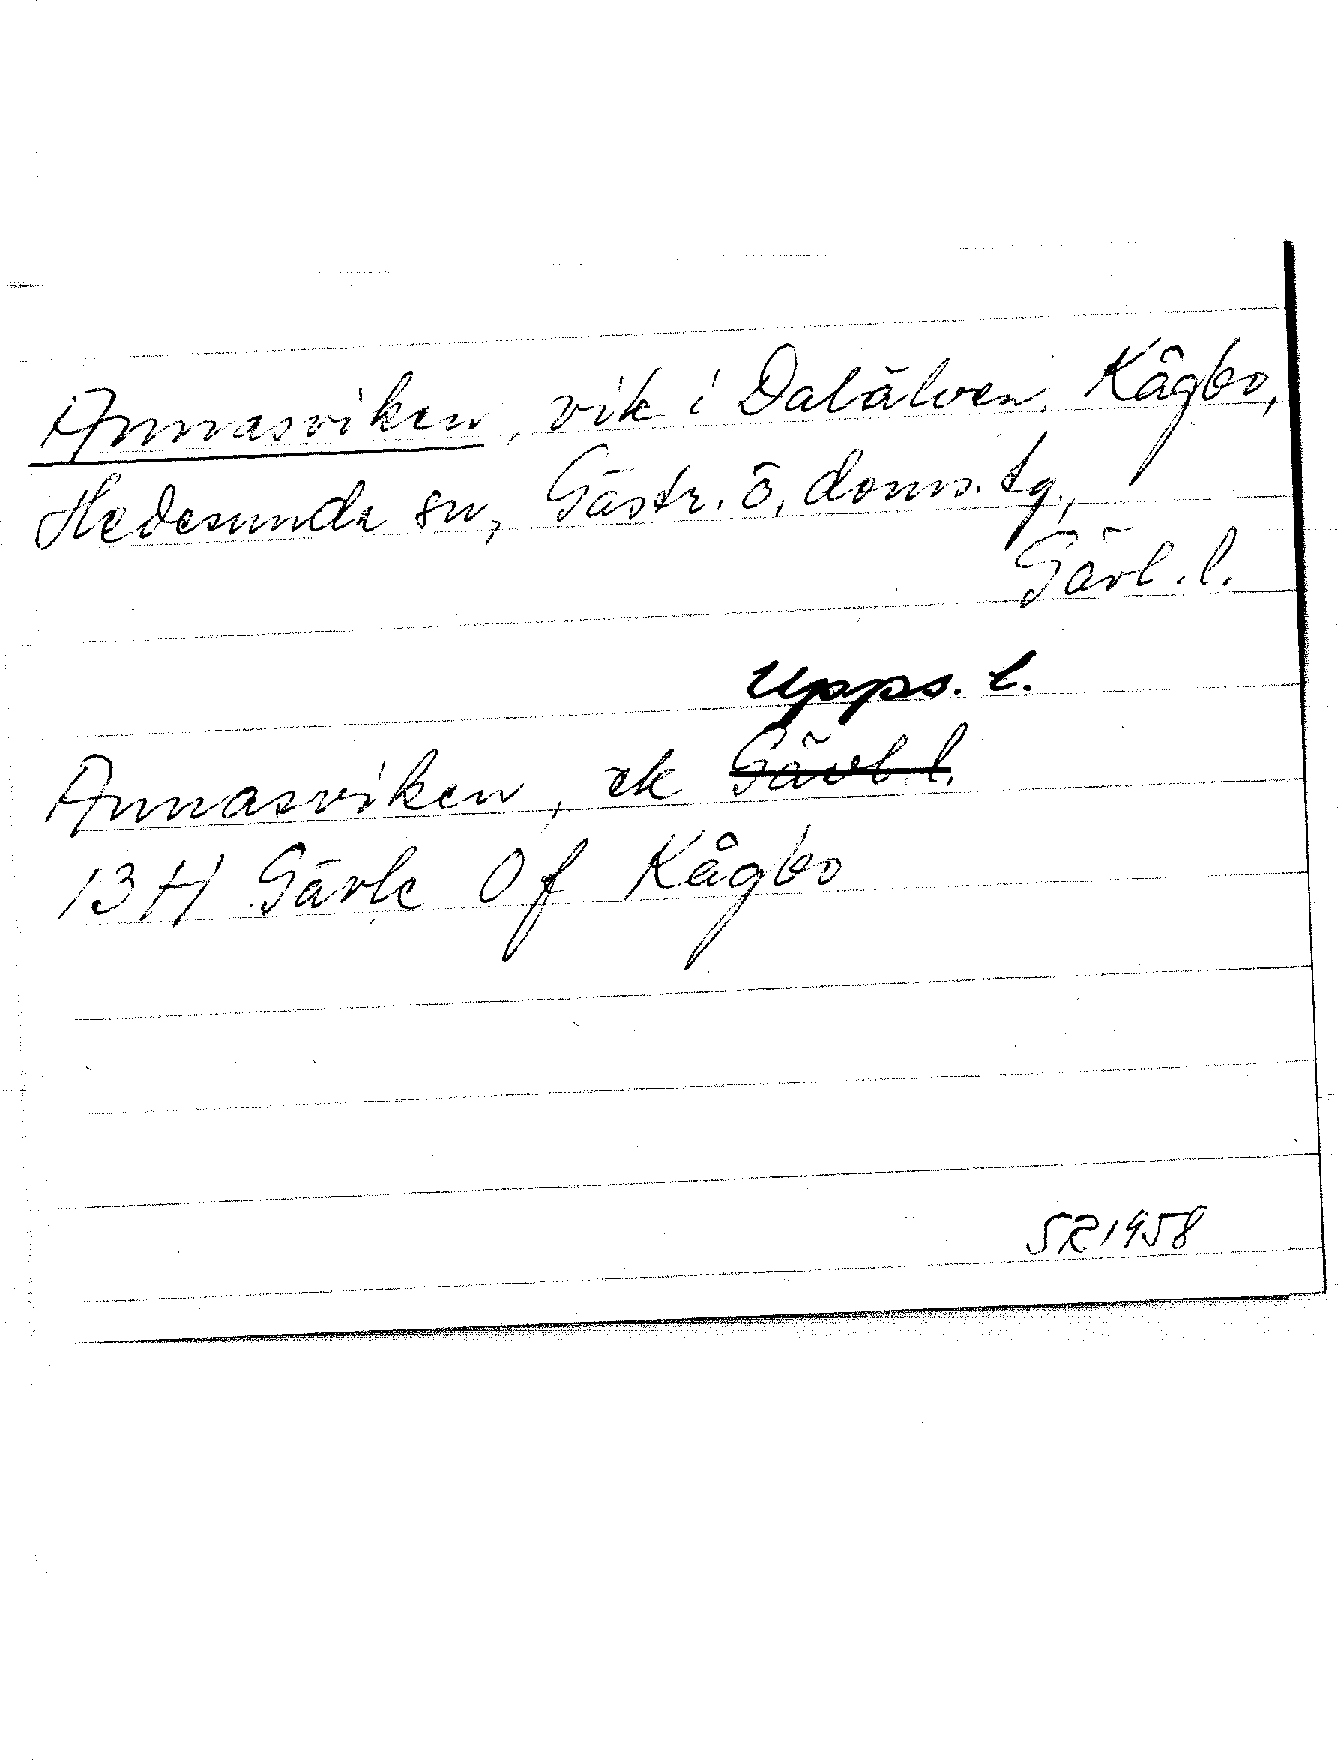 Annasviken, vik i Dalälven, Kågbo,
Hedesunda sn, Gästr. ö. doms. tg.,
Gävl. l.
Upps. l.
Annasviken, ek Gävl. l.
13 H Gävle 0 f Kågbo
SR 1958